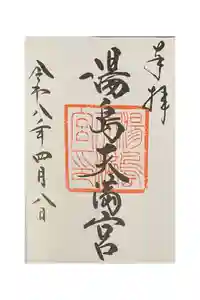 奉拝
湯島天満宮
令和八年四月八日